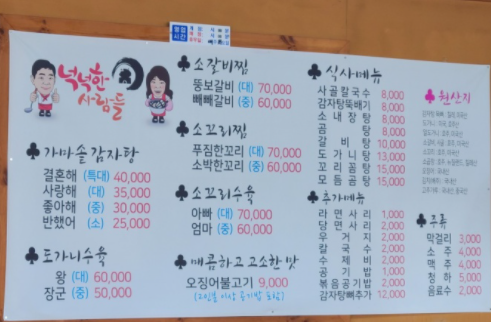 영업
시간
넉넉한
사람들
♣ 가마솥감자탕
결혼해 (특대) 40,000
사랑해 (대) 35,000
좋아해 (중) 30,000
반했어 (소) 25,000
♣ 도가니수육
왕 (대) 60,000
장군 (중) 50,000
♣ 소갈비찜
뚱보갈비 (대) 70,000
빼빼갈비 (중) 60,000
♣ 소꼬리찜
푸짐한꼬리 (대) 70,000
소박한꼬리 (중) 60,000
♣ 소꼬리수육
아빠 (대) 70,000
엄마 (중) 60,000
♣ 매콤하고 고소한 맛
오징어불고기 9,000
(2인분 이상 공기밥 포함)
♣ 식사메뉴
사골칼국수 8,000
감자탕뚝배기 8,000
소내장탕 8,000
곰탕 8,000
갈비탕 10,000
도가니탕 13,000
꼬리곰탕 15,000
모듬곰탕 15,000
♣ 추가메뉴
라면사리 1,000
당면사리 2,000
우거지 2,000
칼국수 2,000
수제비 2,000
공기밥 1,000
볶음공기밥 2,000
감자탕뼈추가 12,000
♣ 원산지
♣ 주류
막걸리 3,000
소주 4,000
맥주 4,000
청하 5,000
음료수 2,000